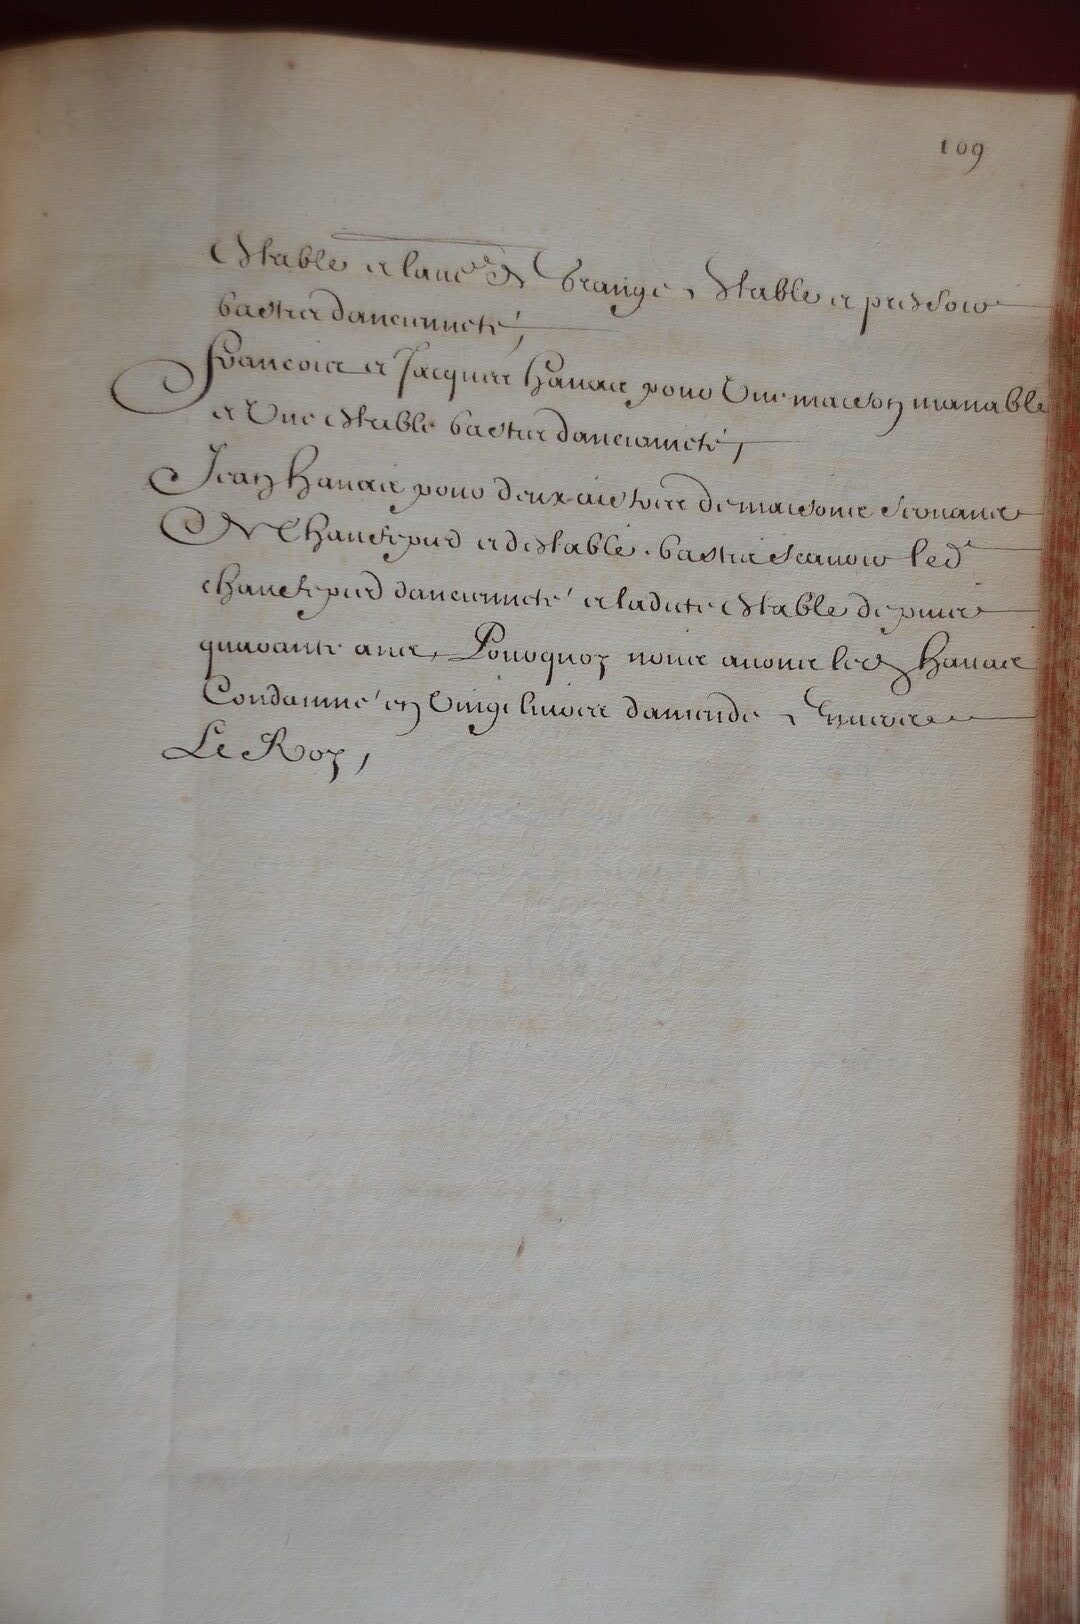 109
Estable et lautre de Grange, Estable et pressoir
bastis dancienneté,
Francois et Jacques Hanais pour Une maison manable
et Une estable bastis dancienneté,
Jean Hanais pour deux aistres de maisons servans
De Chauf pied et destable bastis scavoir led
chauf pied dancienneté et ladite Estable depuis
quarante ans, Pourquoy nous avons led Hanais
Condamné en Vingt livres damende Envers
Le Roy,